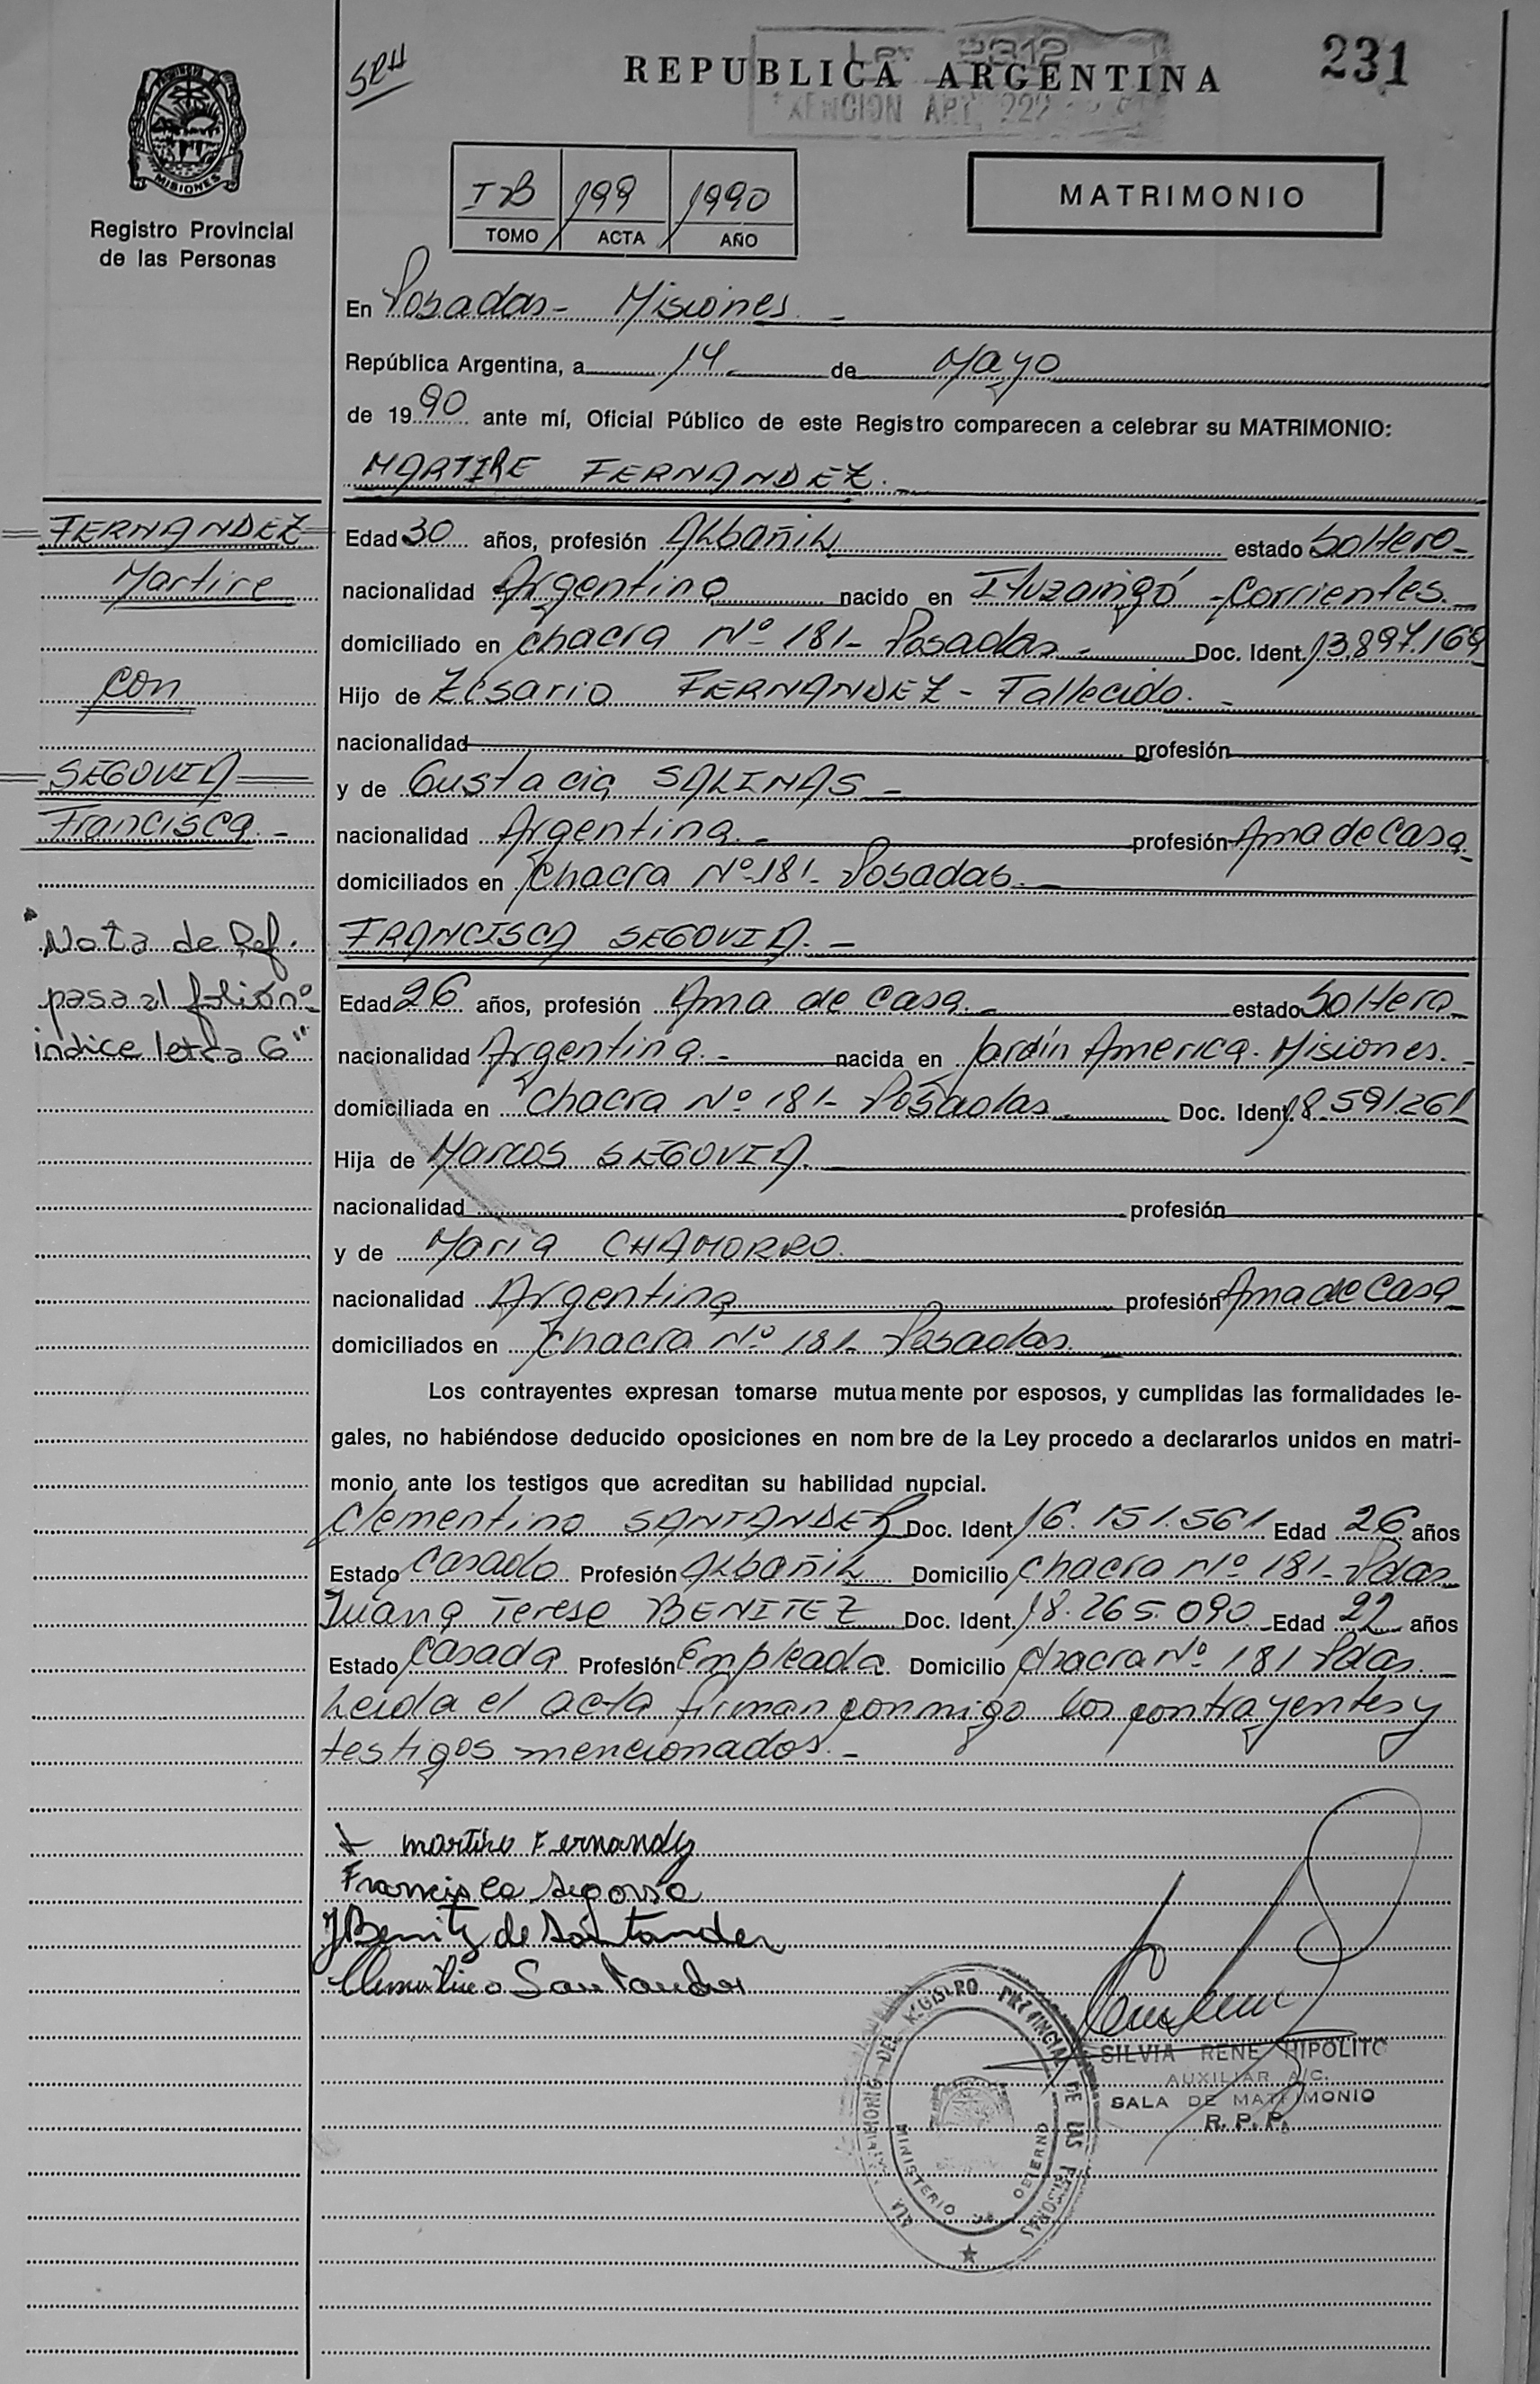 SRH
REPUBLICA ARGENTINA
231
Ley 2312
EXENCION ART. 222
MISIONES
Registro Provincial
de las Personas
IB 199 1990
TOMO ACTA AÑO
MATRIMONIO
En Posadas - Misiones. -
República Argentina, a 14 de Mayo
de 1990 ante mí, Oficial Público de este Registro comparecen a celebrar su MATRIMONIO:
MARTIRE FERNANDEZ. -
FERNANDEZ
Martire
con
SEGOVIA
Francisca. -
"Nota de Ref.
pasa al folio nº
indice letra G"
Edad 30 años, profesión Albañil estado Soltero -
nacionalidad Argentino nacido en Ituzaingó - Corrientes. -
domiciliado en Chacra Nº 181 - Posadas - Doc. Ident. 13.897.169
Hijo de Zesario FERNANDEZ - Fallecido. -
nacionalidad profesión
y de Eustacia SALINAS -
nacionalidad Argentina. - profesión Ama de Casa -
domiciliados en Chacra Nº 181 - Posadas. -
FRANCISCA SEGOVIA. -
Edad 26 años, profesión Ama de Casa. - estado Soltera -
nacionalidad Argentina. - nacida en Jardín America. Misiones. -
domiciliada en Chacra Nº 181 - Posadas Doc. Ident. 18.591.261
Hija de Marcos SEGOVIA
nacionalidad profesión
y de Maria CHAMORRO.
nacionalidad Argentina profesión Ama de Casa -
domiciliados en Chacra Nº 181 - Posadas. -
Los contrayentes expresan tomarse mutuamente por esposos, y cumplidas las formalidades le-
gales, no habiéndose deducido oposiciones en nombre de la Ley procedo a declararlos unidos en matri-
monio ante los testigos que acreditan su habilidad nupcial.
Clementino SANTANDER Doc. Ident. 16.151.561 Edad 26 años
Estado Casado Profesión Albañil Domicilio Chacra Nº 181 - Pdas
Juana Terese BENITEZ Doc. Ident. 18.265.090 Edad 22 años
Estado Casada Profesión Empleada Domicilio Chacra Nº 181 Pdas. -
Leida el acta firman conmigo los contrayentes y
testigos mencionados. -
x martire Fernandez
Francisca Segovia
J Benitez de Santander
Clementino Santander
SILVIA RENE HIPOLITO
AUXILIAR A/C.
SALA DE MATRIMONIO
R. P. P.
SALA MATRIMONIO DEL REGISTRO PROVINCIAL DE LAS PERSONAS
MINISTERIO DE GOBIERNO